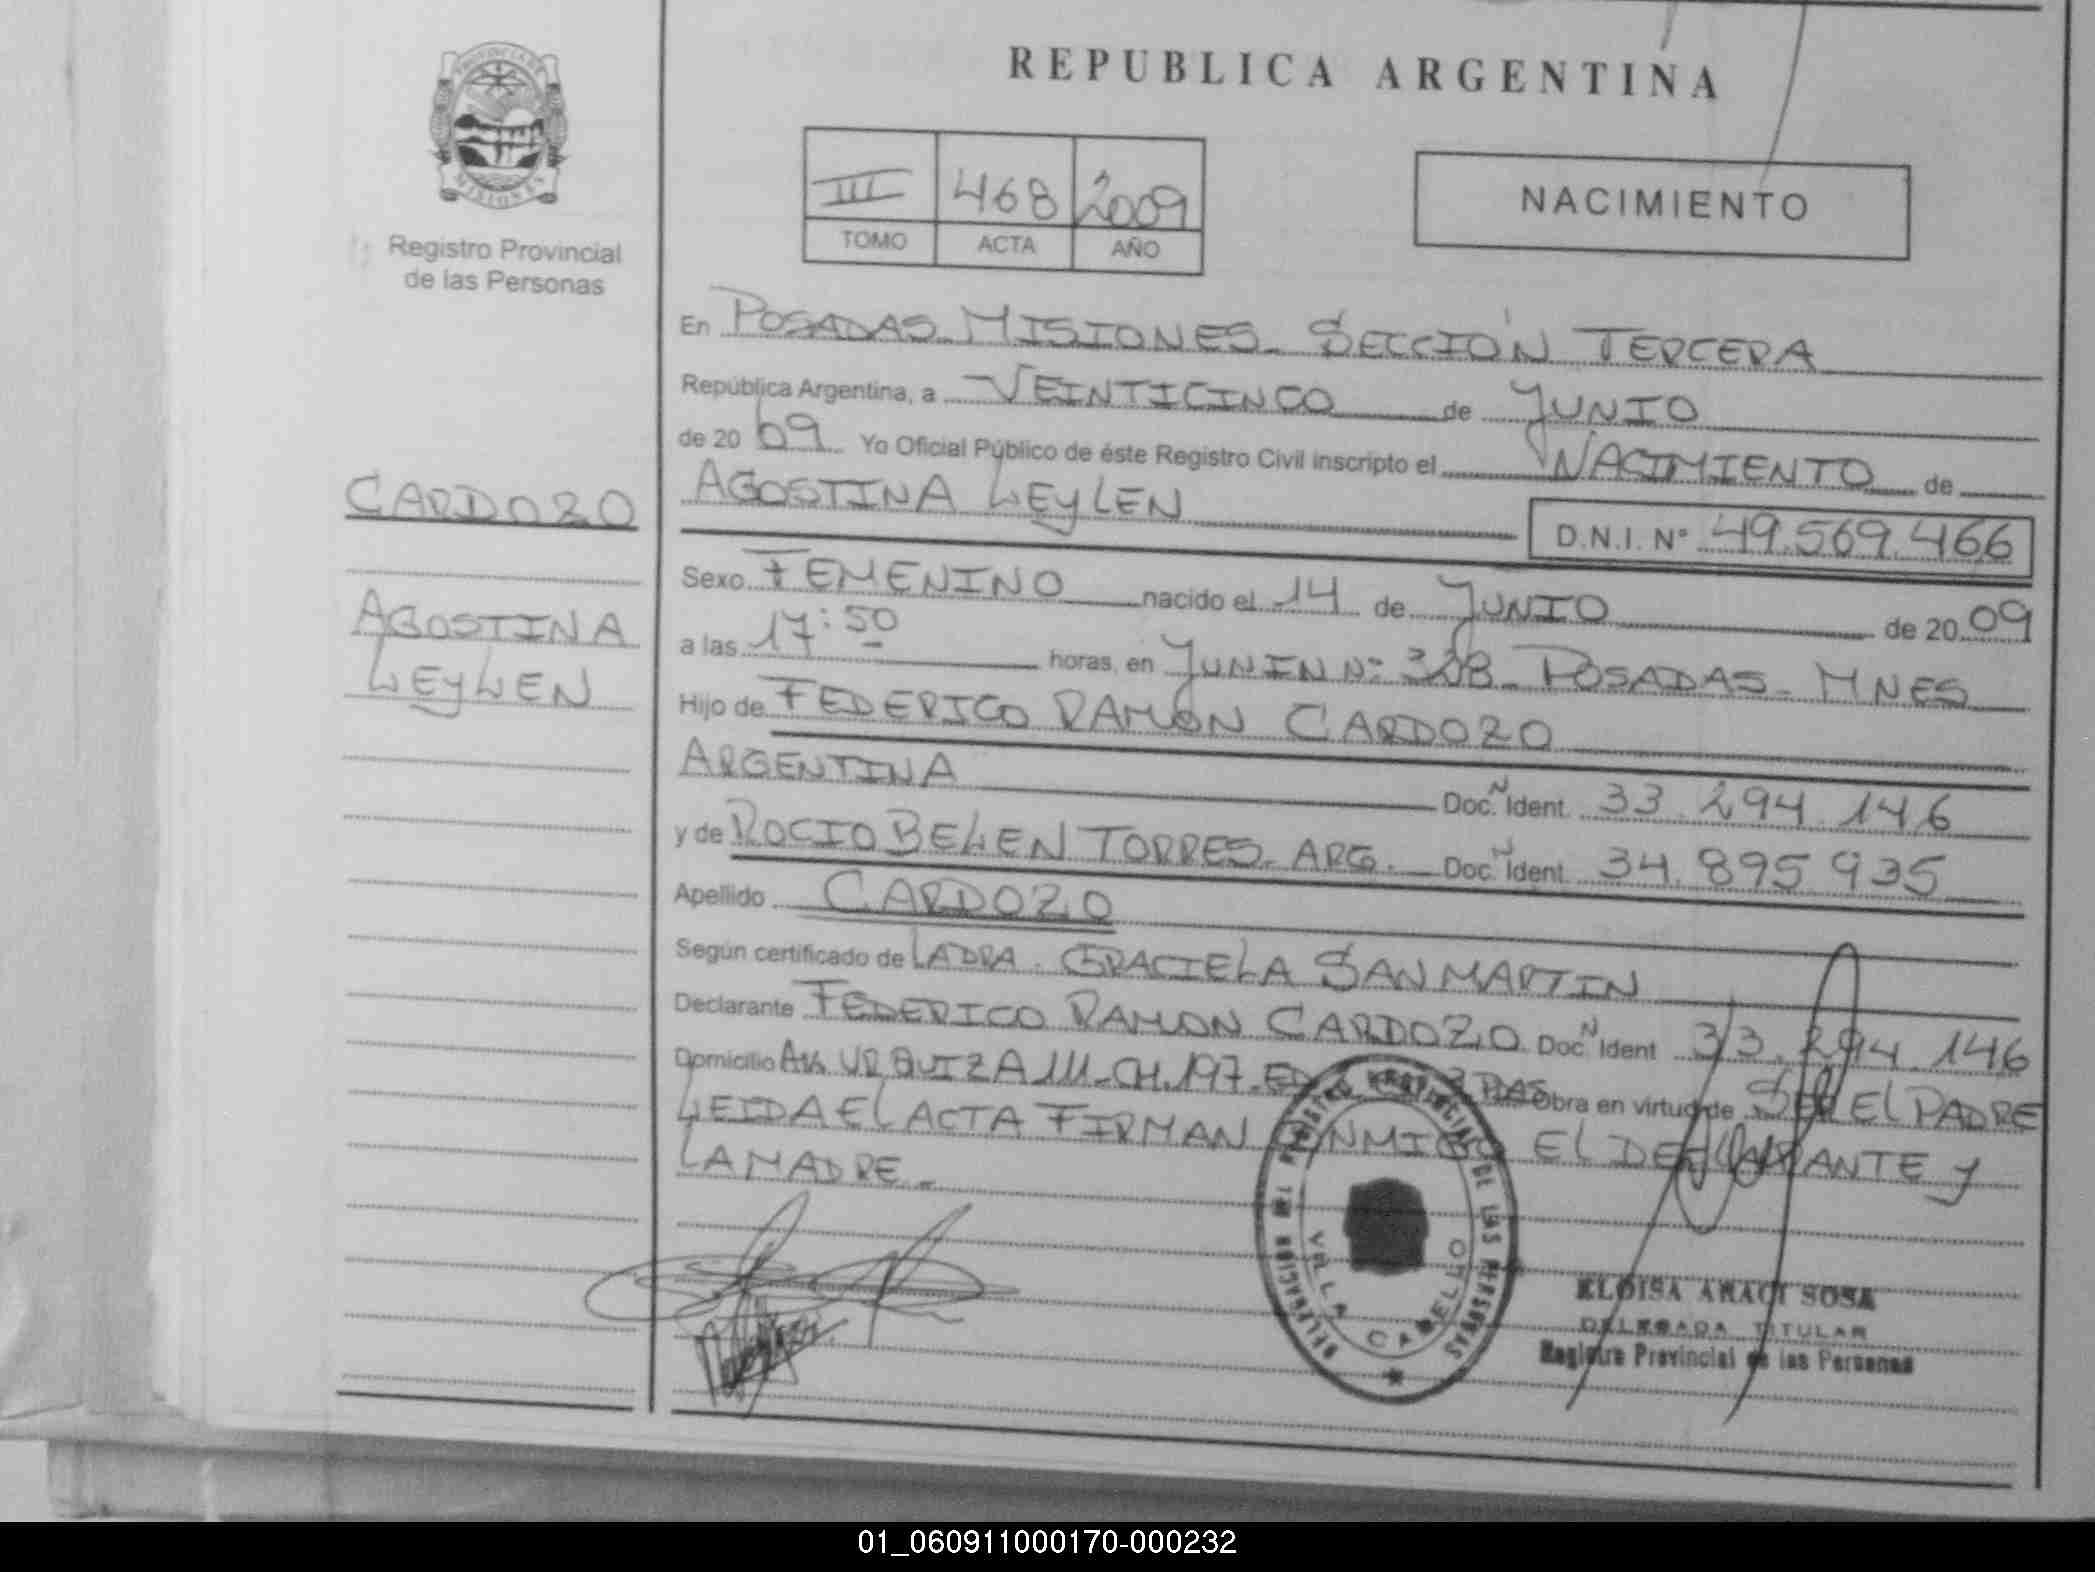 PROVINCIA DE
MISIONES
Registro Provincial
de las Personas
CARDOZO
AGOSTINA
LEYLEN
REPUBLICA ARGENTINA
III 468 2009
TOMO ACTA AÑO
NACIMIENTO
En POSADAS-MISIONES- SECCIÓN TERCERA
República Argentina, a VEINTICINCO de JUNIO
de 2009 Yo Oficial Público de éste Registro Civil inscripto el NACIMIENTO de
AGOSTINA LEYLEN
D.N.I. N° 49.569.466
Sexo FEMENINO nacido el 14 de JUNIO de 2009
a las 17:50 horas, en JUNIN N: POSADAS- MNES
Hijo de FEDERICO RAMON CARDOZO
ARGENTINA Doc. N Ident. 33.294.146
y de ROCIO BELEN TORRES- ARG. Doc. N Ident. 34.895.935
Apellido CARDOZO
Según certificado de LA DRA. GRACIELA SAN MARTIN
Declarante FEDERICO RAMON CARDOZO Doc. N Ident 33.294.146
Domicilio URQUIZA CH.197- Obra en virtud de SER EL PADRE
LEIDA EL ACTA FIRMAN CONMIGO EL DECLARANTE Y
LA MADRE-
DELEGACION REGISTRO PROVINCIAL DE LAS PERSONAS
VILLA CABELLO
ELOISA ARACI SOSA
DELEGADA TITULAR
Registro Provincial de las Personas
01_060911000170-000232